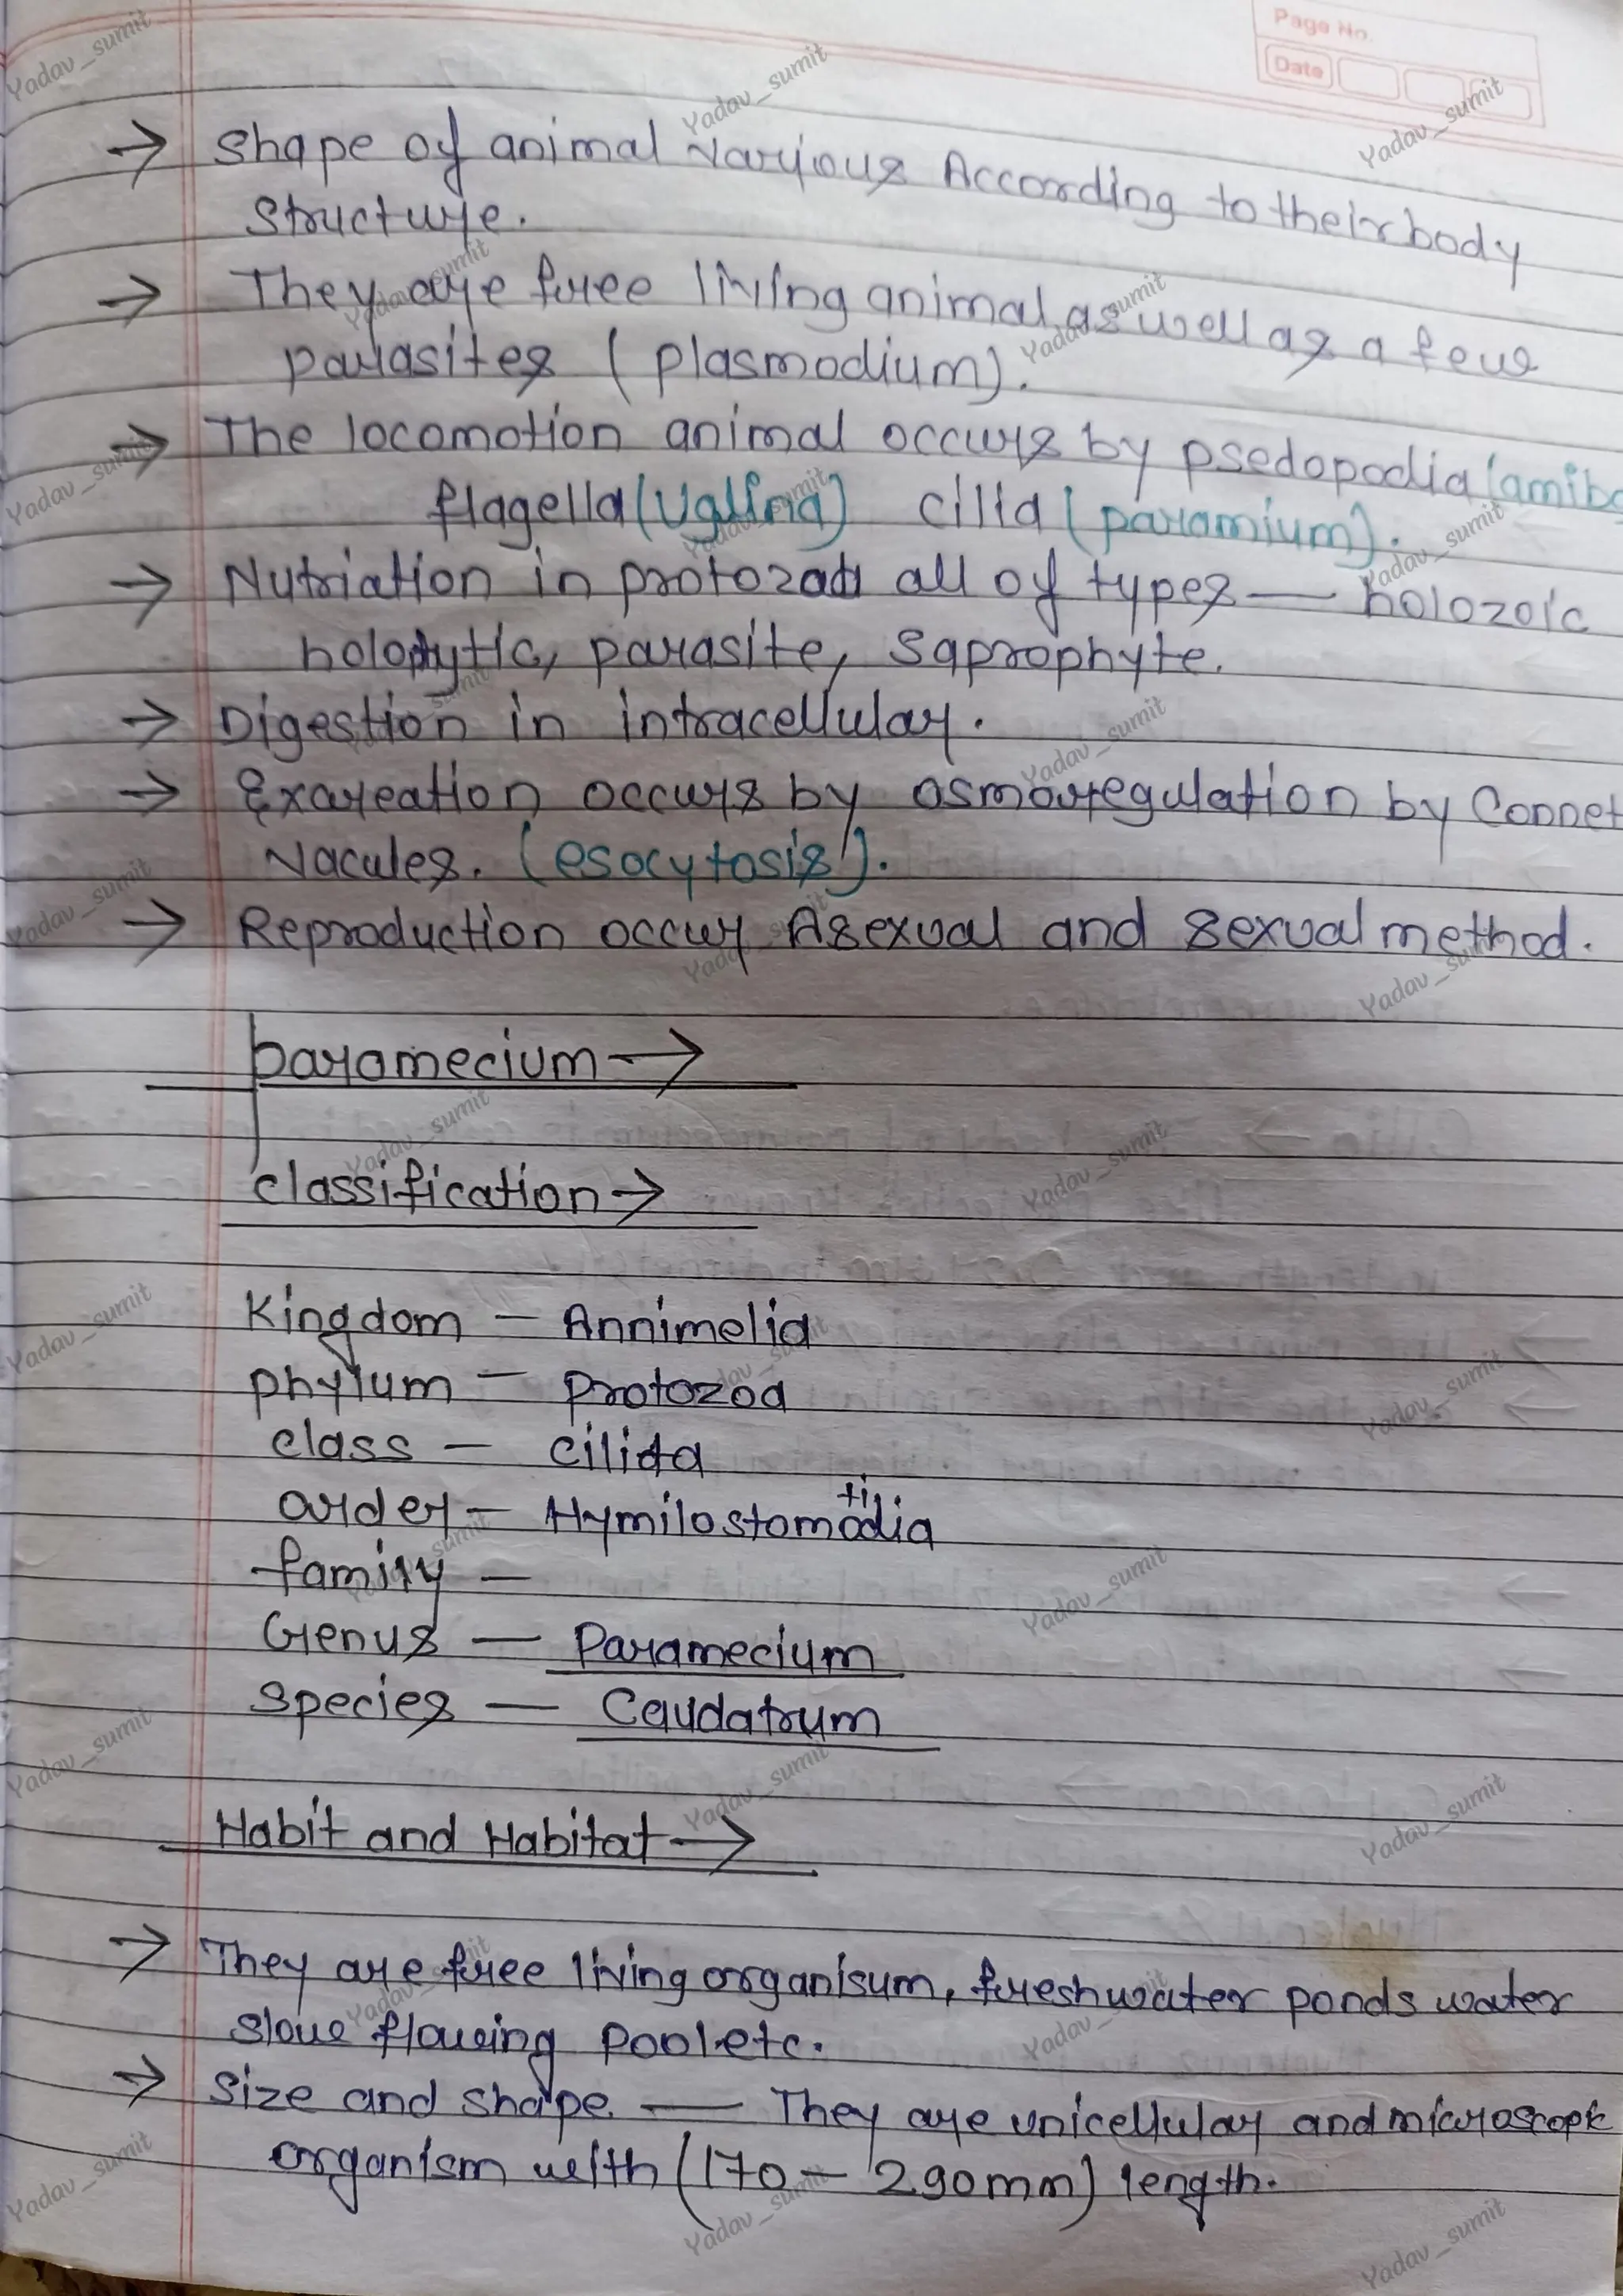 Page No.
Date
→ Shape of animal various According to their body
structure.
→ They are free living animal as well as a few
parasites (plasmodium).
→ The locomotion animal occurs by psedopodia (amiba
flagella (Uglina) cilia (paramium).
→ Nutriation in protozoa all of types — holozoic
holophytic, parasite, saprophyte.
→ Digestion in intracellular.
→ Exareation occurs by osmoregulation by Connet
Vacules. (esocytosis).
→ Reproduction occur Asexual and sexual method.
paramecium →
classification →
Kingdom — Annimelia
phylum — protozoa
class — cilida
order — Hymilostomodia
ti
family —
Genus — Paramecium
species — Caudatrum
Habit and Habitat →
→ They are free living organisum, freshwater ponds water
slowe flowing pool etc.
→ size and shape. — They are unicellular and microscopic
organism with (170 – 290mm) length.
Yadav_sumit